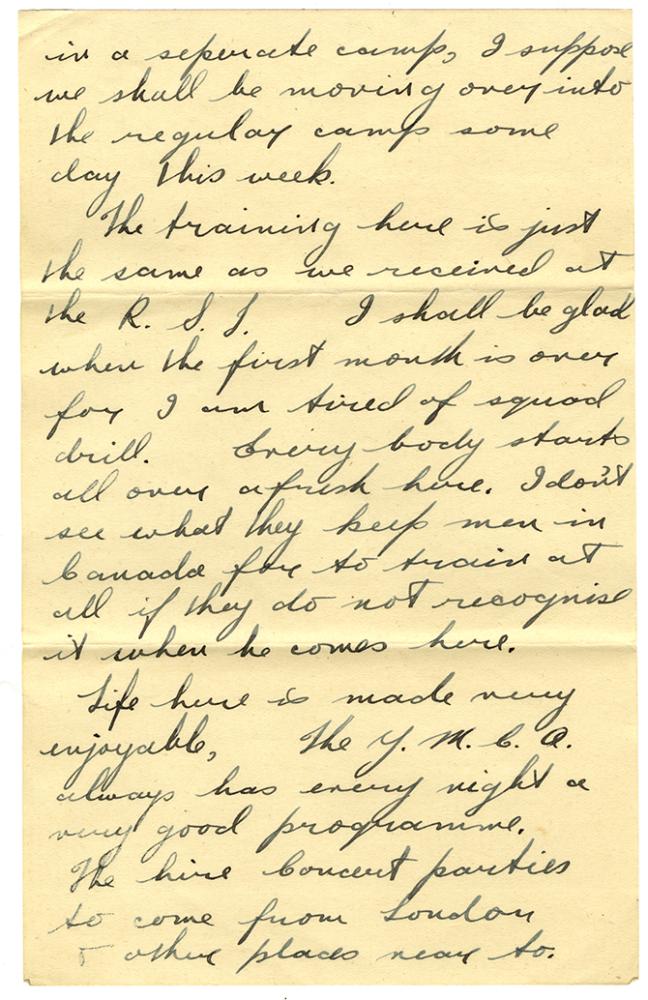 in a seperate camp, I suppose
we shall be moving over into
the regular camp some
day this week.
The training here is just
the same as we received at
the R. S. I. I shall be glad
when the first month is over
for I am tired of squad
drill. Every body starts
all over afresh here. I don't
see what they keep men in
Canada for to train at
all if they do not recognise
it when he comes here.
Life here is made very
enjoyable, The Y. M. C. A.
always has every night a
very good programme.
The hire Concert parties
to come from London
& other places near to.